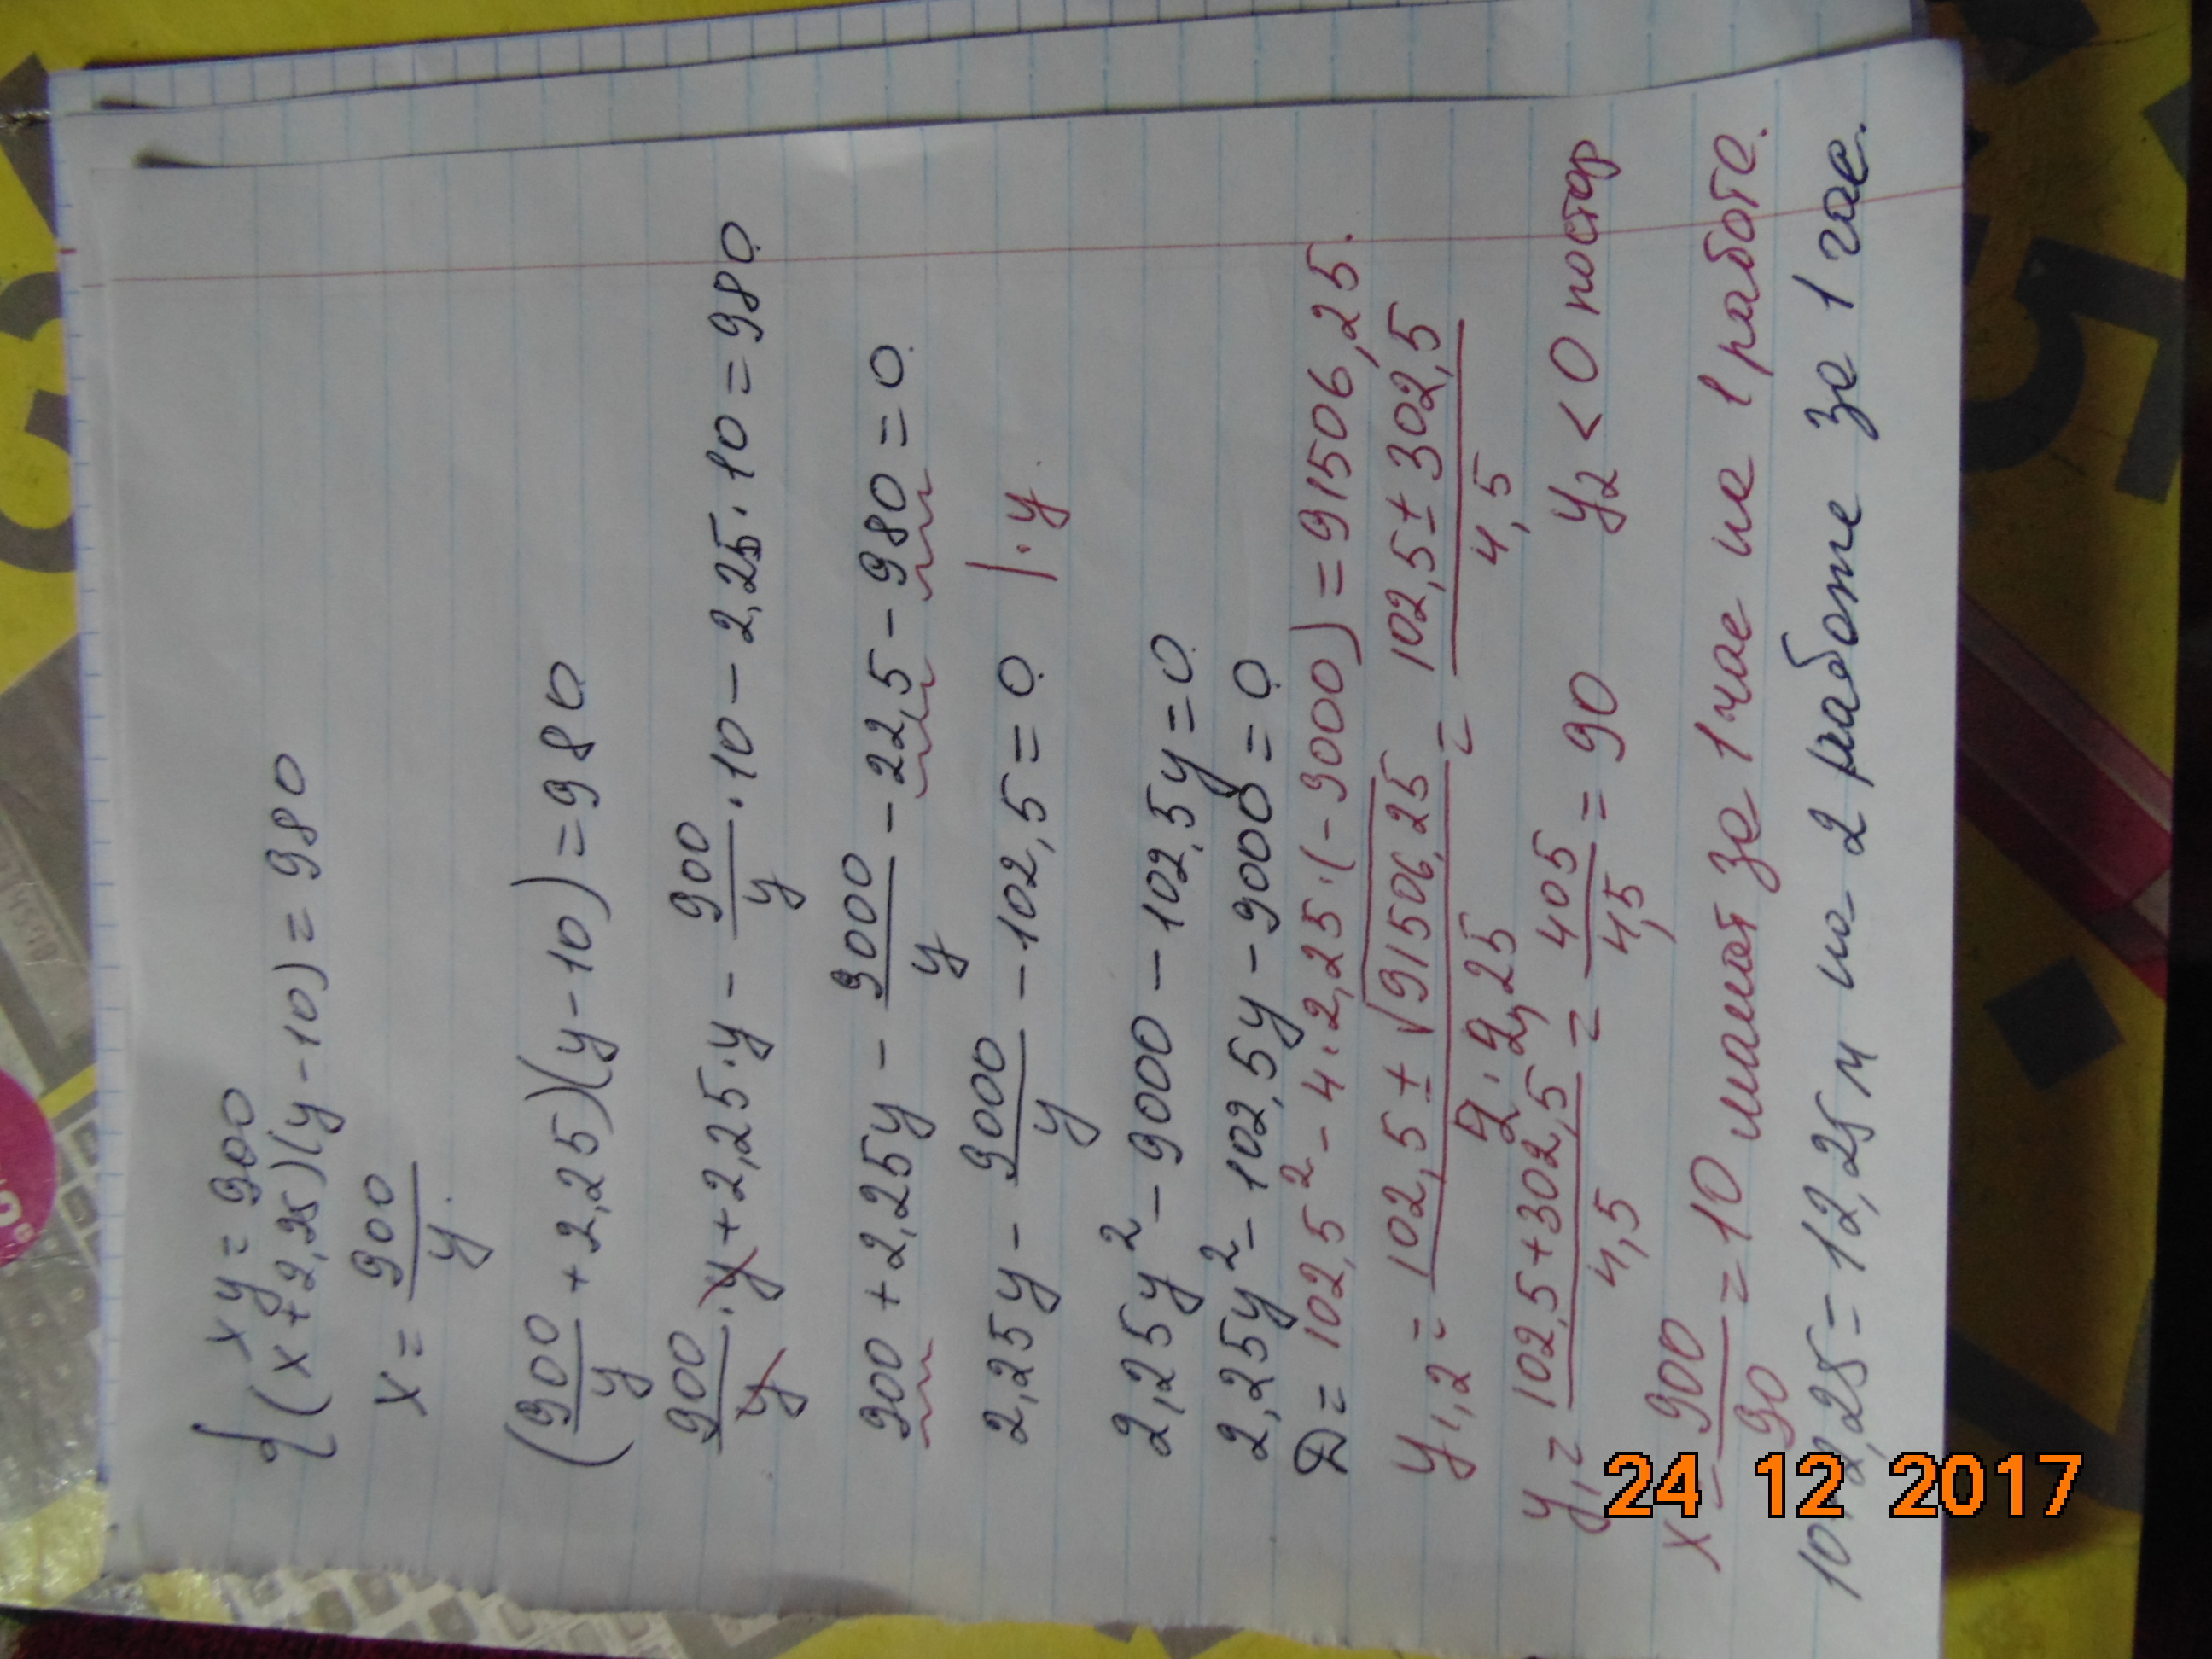 xy = 900
(x+2,25)(y-10) = 980
x = 900/y
(900/y + 2,25)(y-10) = 980
900/y · y + 2,25 · y - 900/y · 10 - 2,25 · 10 = 980
900 + 2,25y - 9000/y - 22,5 - 980 = 0
2,25y - 9000/y - 102,5 = 0 | · y
2,25y² - 9000 - 102,5y = 0
2,25y² - 102,5y - 9000 = 0
D = 102,5² - 4 · 2,25 · (-9000) = 91506,25.
y₁,₂ = (102,5 ± √91506,25)/(2 · 2,25) = (102,5 ± 302,5)/4,5
y₁ = (102,5+302,5)/4,5 = 405/4,5 = 90 y₂ < 0 постор
x = 900/90 = 10 за 1 час на 1 работе.
10+2,25 = 12,25 м на 2 работе за 1 час.
24 12 2017